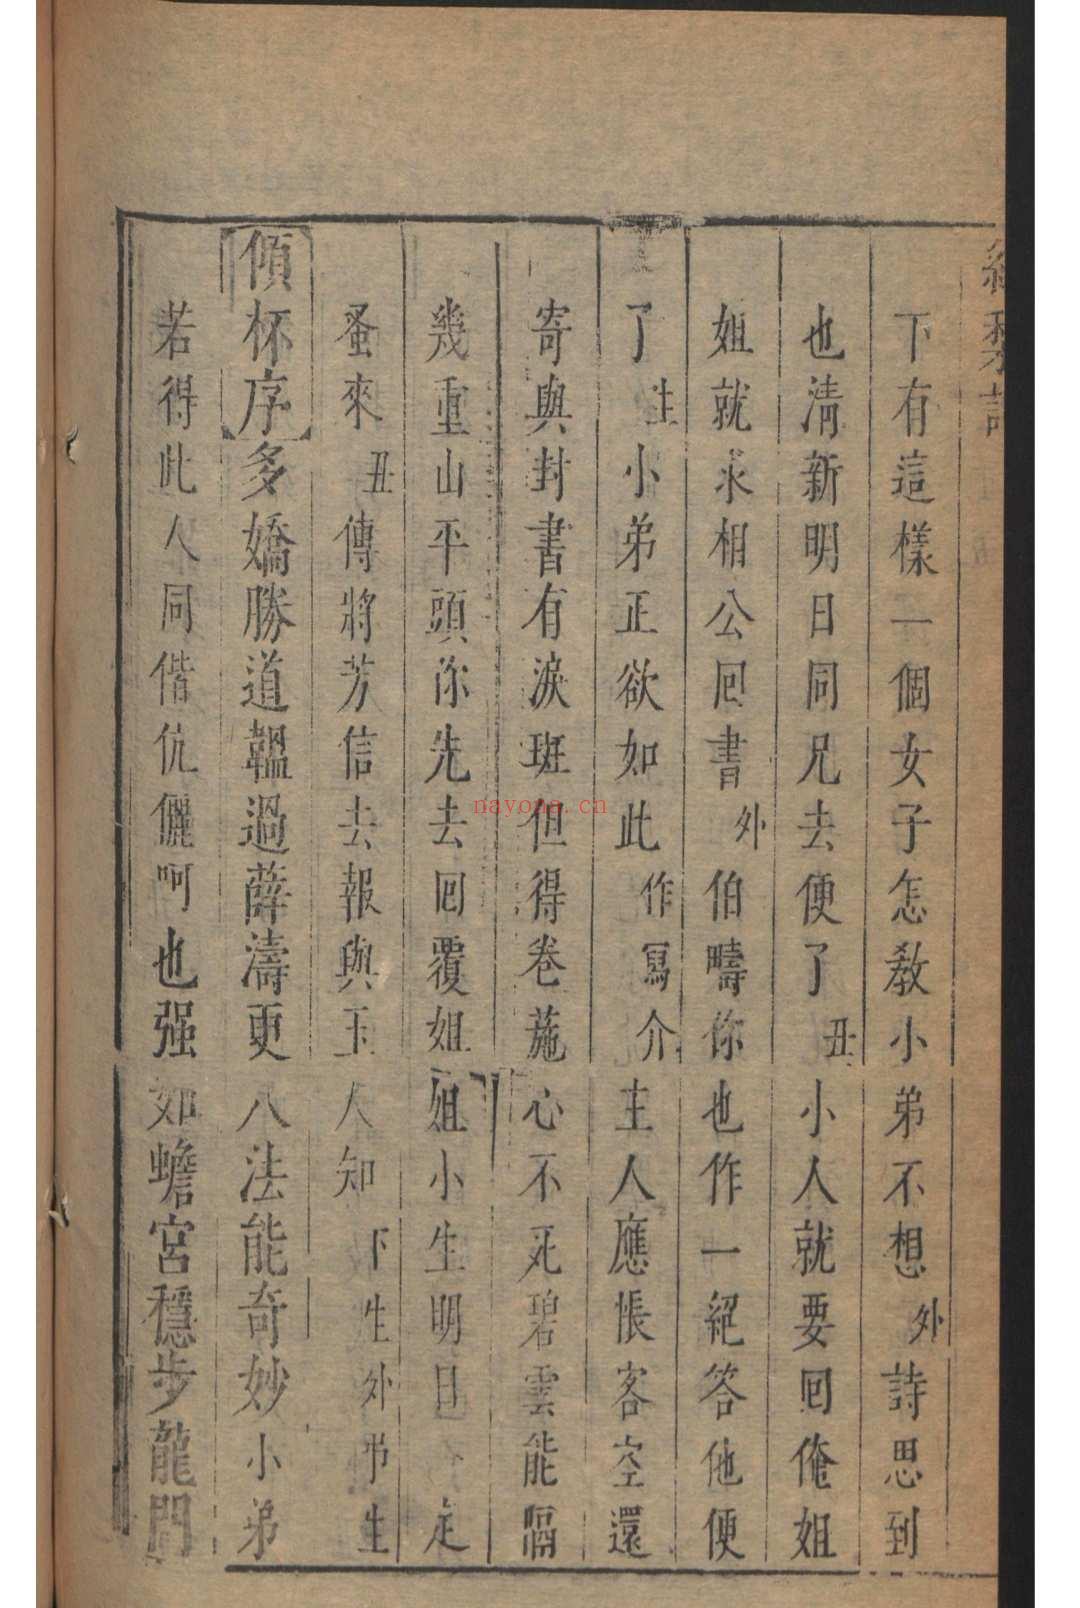 下有這樣一個女子怎敎小弟不想外詩思到
也清新明日同兄去便了丑小人就要囘俺姐
姐就求相公囘書外伯疇你也作一絕答他便
了生小弟正欲如此作寫介主人應悵客空還
寄與封書有淚斑但得卷葹心不死碧雲能隔
幾重山平頭你先去囘覆姐姐小生明日定
蚤來丑傳將芳信去報與玉人知下生外弔生
傾杯序多嬌勝道韞過薛濤更八法能奇妙小弟
若得此人同偕伉儷呵也强如蟾宮穩步龍門
nayona.cn